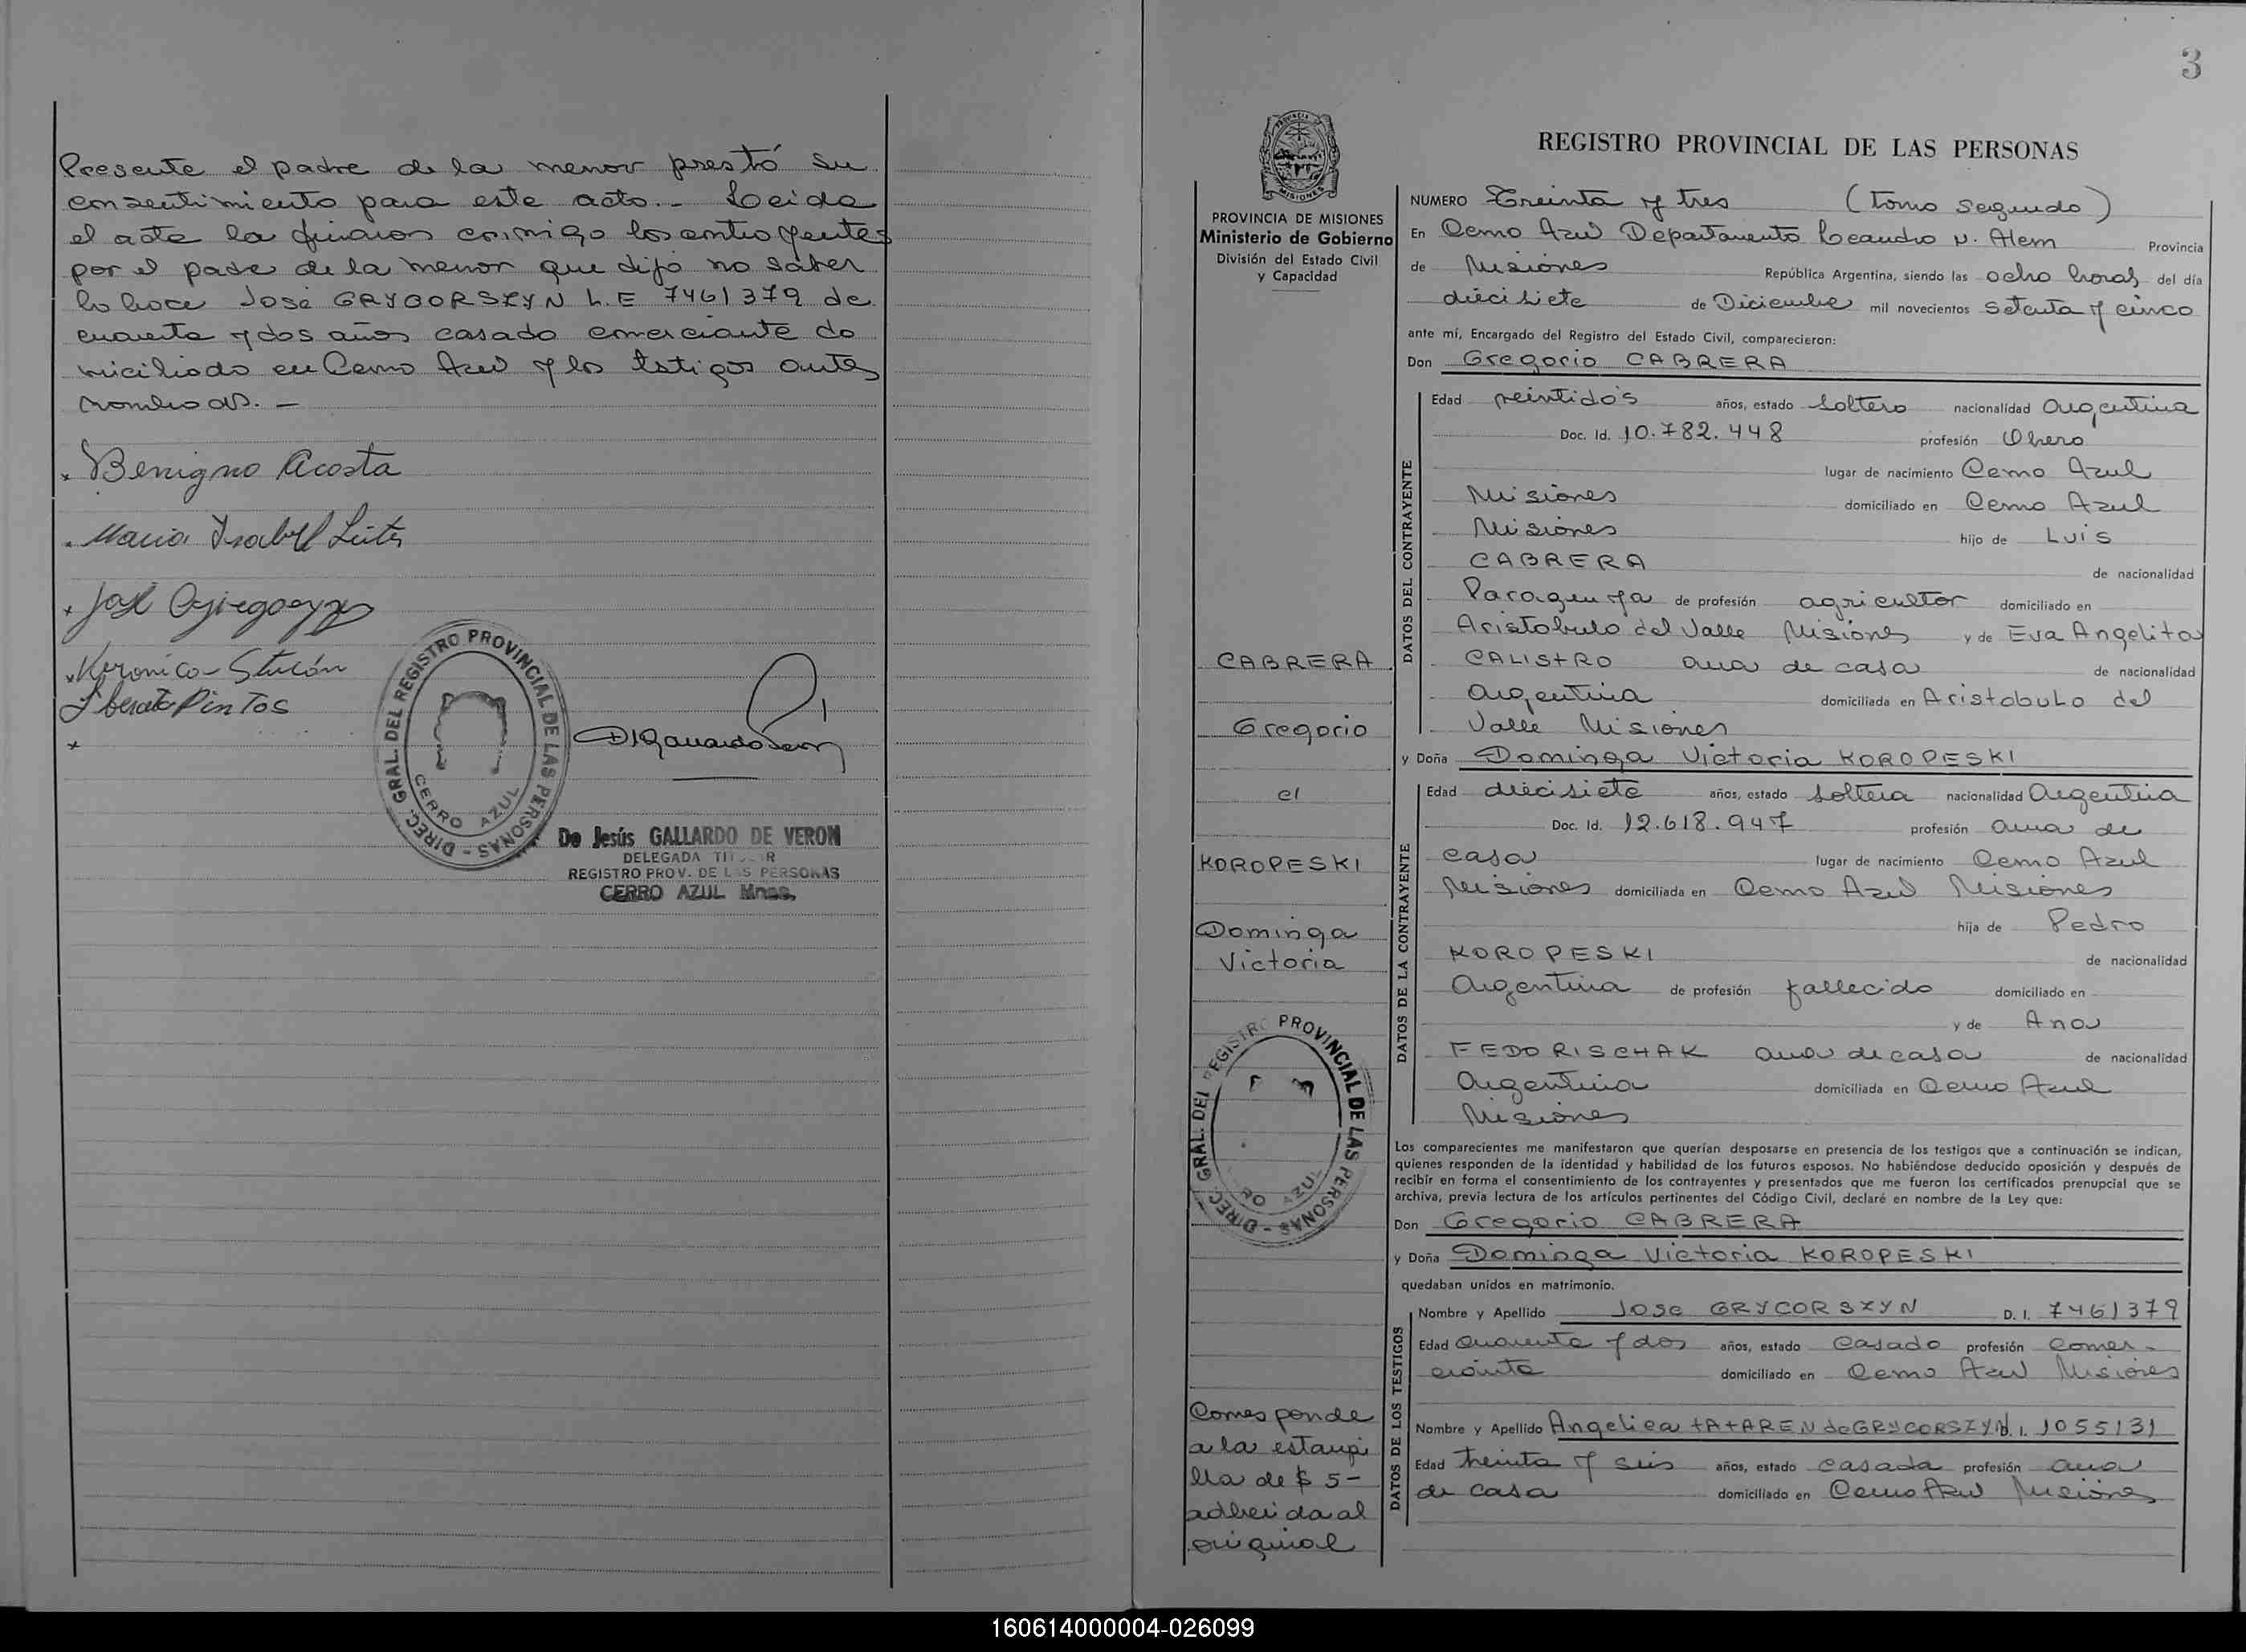 Presente el padre de la menor prestó su
consentimiento para este acto.- Leida
el acta la firmaron conmigo los contrayentes
por el padre de la menor que dijo no saber
lo hace José GRYGORSZYN L.E 7461379 de
cuarenta y dos años casado comerciante do
miciliado en Cerro Azul y los testigos antes
nombrados. -
Benigno Acosta
Maria Isabel
José
Veronica
Liberato Pintos
DIREC. GRAL. DEL REGISTRO PROVINCIAL DE LAS PERSONAS -
CERRO AZUL
De Jesús GALLARDO DE VERON
DELEGADA TITULAR
REGISTRO PROV. DE LAS PERSONAS
CERRO AZUL Mnes.
3
MISIONES
PROVINCIA DE MISIONES
Ministerio de Gobierno
División del Estado Civil
y Capacidad
CABRERA
Gregorio
el
KOROPESKI
Dominga
Victoria
DIREC. GRAL. DEL REGISTRO PROVINCIAL DE LAS PERSONAS -
Corresponde
a la estampi
lla de $ 5-
adherida al
original
REGISTRO PROVINCIAL DE LAS PERSONAS
NUMERO Treinta y tres (tomo segundo)
En Cerro Azul Departamento Leandro N. Alem Provincia
de Misiones República Argentina, siendo las ocho horas del día
diecisiete de Diciembre mil novecientos setenta y cinco
ante mí, Encargado del Registro del Estado Civil, comparecieron:
Don Gregorio CABRERA
DATOS DEL CONTRAYENTE
Edad veintidós años, estado soltero nacionalidad argentina
Doc. Id. 10.782.448 profesión Obrero
lugar de nacimiento Cerro Azul
Misiones domiciliado en Cerro Azul
Misiones hijo de Luis
CABRERA de nacionalidad
Paraguaya de profesión agricultor domiciliado en
Aristobulo del Valle Misiones y de Eva Angelita
CALISTRO ama de casa de nacionalidad
argentina domiciliada en Aristobulo del
Valle Misiones
y Doña Dominga Victoria KOROPESKI
DATOS DE LA CONTRAYENTE
Edad diecisiete años, estado soltera nacionalidad Argentina
Doc. Id. 12.618.947 profesión ama de
casa lugar de nacimiento Cerro Azul
Misiones domiciliada en Cerro Azul Misiones
hija de Pedro
KOROPESKI de nacionalidad
Argentina de profesión fallecido domiciliado en
y de Ana
FEDORISCHAK ama de casa de nacionalidad
Argentina domiciliada en Cerro Azul
Misiones
Los comparecientes me manifestaron que querían desposarse en presencia de los testigos que a continuación se indican,
quienes responden de la identidad y habilidad de los futuros esposos. No habiéndose deducido oposición y después de
recibir en forma el consentimiento de los contrayentes y presentados que me fueron los certificados prenupcial que se
archiva, previa lectura de los artículos pertinentes del Código Civil, declaré en nombre de la Ley que:
Don Gregorio CABRERA
y Doña Dominga Victoria KOROPESKI
quedaban unidos en matrimonio.
DATOS DE LOS TESTIGOS
Nombre y Apellido Jose GRYCORSZYN D. I. 7461379
Edad cuarenta y dos años, estado casado profesión comer-
ciante domiciliado en Cerro Azul Misiones
Nombre y Apellido Angelica TATAREN de GRYCORSZYN D. I. 1055131
Edad treinta y seis años, estado casada profesión ama
de casa domiciliado en Cerro Azul Misiones
160614000004-026099